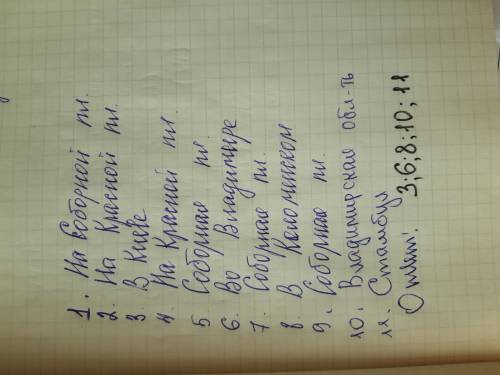 1. На Соборной пл.
2. На Красной пл.
3. В Киеве
4. На Красной пл.
5 Соборная пл.
6. Во Владимире
7. Соборная пл.
8. В Коломинском
9. Соборная пл.
10. Владимирская обл-ть
11. Стамбул
Ответ: 3;6;8;10;11